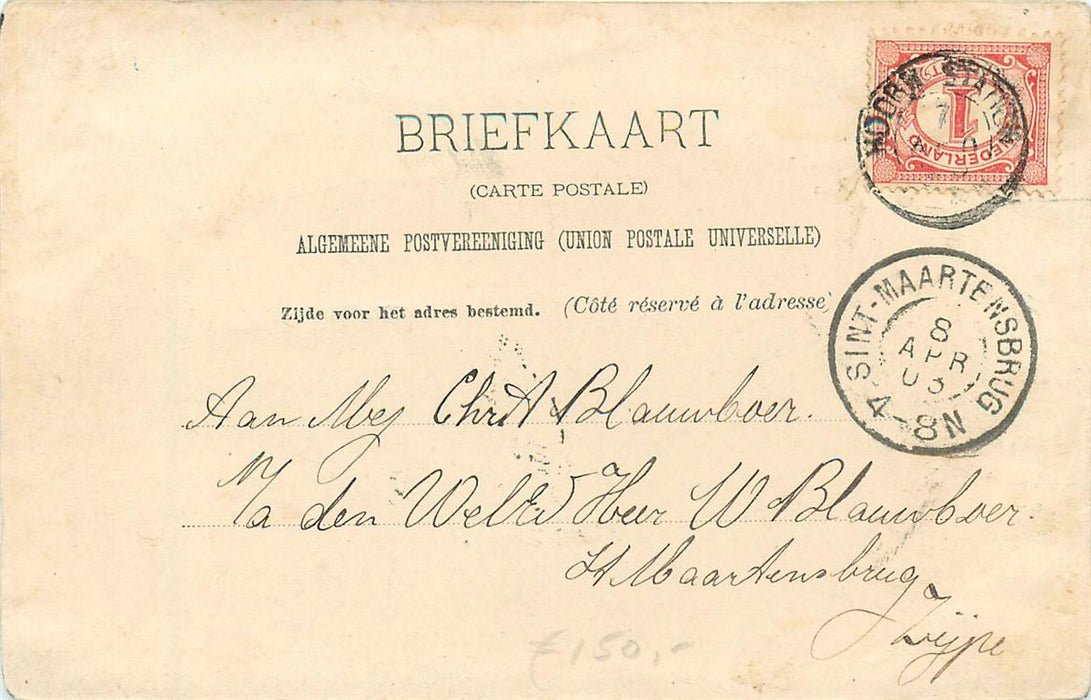 BRIEFKAART
(CARTE POSTALE)
ALGEMEENE POSTVEREENIGING (UNION POSTALE UNIVERSELLE)
Zijde voor het adres bestemd. (Côté réservé à l'adresse)
NEDERLAND
1
HOORN STATION
SINT-MAARTENSBRUG
8
APR
03
4-8N
Aan Mej Chr A Blauwboer.
P/a den WelEd Heer W Blauwboer.
St Maartensbrug
Zijpe
f 150,-